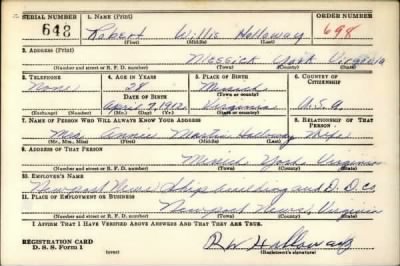 SERIAL NUMBER
1. NAME (Print)
ORDER NUMBER
648
Robert Willis Holloway
698
(First) (Middle) (Last)
2. ADDRESS (Print)
Messick York Virginia
(Number and street or R. F. D. number) (Town) (County) (State)
3. TELEPHONE
4. AGE IN YEARS
5. PLACE OF BIRTH
6. COUNTRY OF CITIZENSHIP
None
28
Messick
DATE OF BIRTH
(Town or county)
April 7, 1912
Virginia
U.S.A.
(Exchange) (Number)
(Mo.) (Day) (Yr.)
(State or country)
7. NAME OF PERSON WHO WILL ALWAYS KNOW YOUR ADDRESS
8. RELATIONSHIP OF THAT PERSON
Mrs. Annie Martin Holloway Wife
(Mr., Mrs., Miss) (First) (Middle) (Last)
9. ADDRESS OF THAT PERSON
Messick York Virginia
(Number and street or R. F. D. number) (Town) (County) (State)
10. EMPLOYER'S NAME
Newport News Ship building and D. D. Co
11. PLACE OF EMPLOYMENT OR BUSINESS
Newport News Virginia
(Number and street or R. F. D. number) (Town) (County) (State)
I AFFIRM THAT I HAVE VERIFIED ABOVE ANSWERS AND THAT THEY ARE TRUE.
REGISTRATION CARD
D. S. S. Form 1
(over)
R W Holloway
(Registrant's signature)